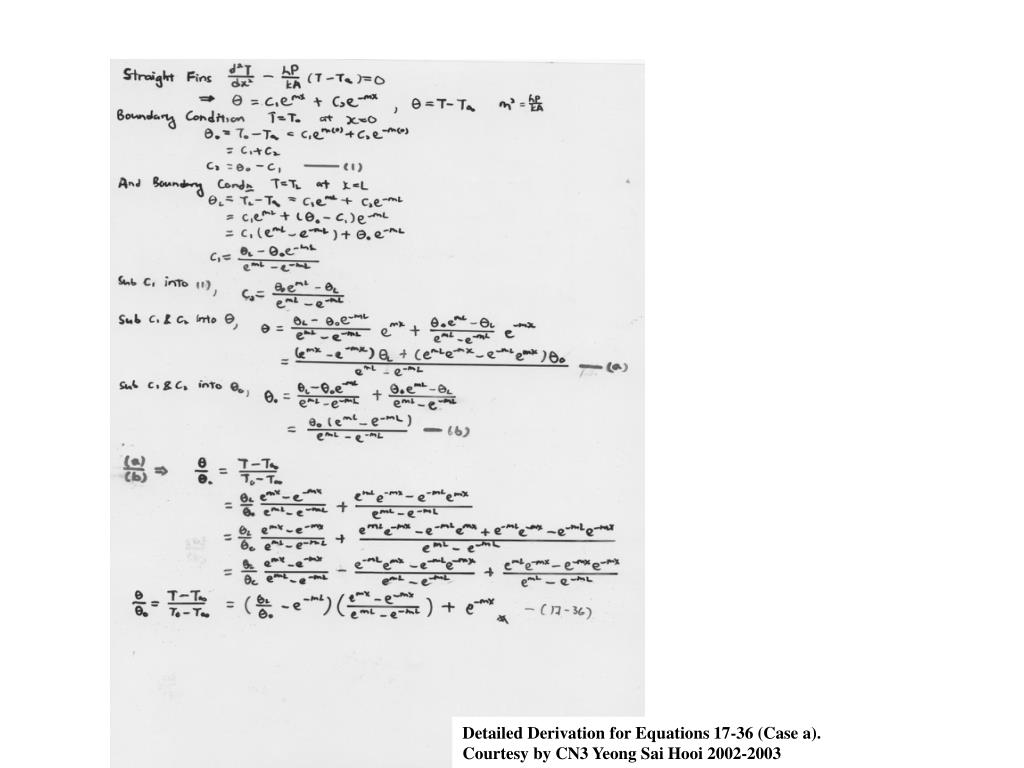 Straight Fins d²T/dx² - hP/kA (T-T∞)=0
⇒ θ = C₁e^mx + C₂e^-mx , θ=T-T∞ m² = hP/kA
Boundary Condition T=T₀ at x=0
θ₀ = T₀-T∞ = C₁e^m(0) + C₂e^-m(0)
= C₁+C₂
C₂ = θ₀ - C₁ —— (1)
And Boundary Condn T=T_L at x=L
θ_L = T_L-T∞ = C₁e^mL + C₂e^-mL
= C₁e^mL + (θ₀ - C₁)e^-mL
= C₁(e^mL - e^-mL) + θ₀e^-mL
C₁ = (θ_L - θ₀e^-mL)/(e^mL - e^-mL)
Sub C₁ into (1), C₂ = (θ₀e^mL - θ_L)/(e^mL - e^-mL)
Sub C₁ & C₂ into θ, θ = (θ_L - θ₀e^-mL)/(e^mL - e^-mL) e^mx + (θ₀e^mL - θ_L)/(e^mL - e^-mL) e^-mx
= ((e^mx - e^-mx)θ_L + (e^mL e^-mx - e^-mL e^mx)θ₀)/(e^mL - e^-mL) —— (a)
Sub C₁ & C₂ into θ₀, θ₀ = (θ_L - θ₀e^-mL)/(e^mL - e^-mL) + (θ₀e^mL - θ_L)/(e^mL - e^-mL)
= θ₀(e^mL - e^-mL)/(e^mL - e^-mL) — (b)
(a)/(b) ⇒ θ/θ₀ = (T-T∞)/(T₀-T∞)
= θ_L/θ₀ (e^mx - e^-mx)/(e^mL - e^-mL) + (e^mL e^-mx - e^-mL e^mx)/(e^mL - e^-mL)
= θ_L/θ₀ (e^mx - e^-mx)/(e^mL - e^-mL) + (e^mL e^-mx - e^-mL e^mx + e^-mL e^-mx - e^-mL e^-mx)/(e^mL - e^-mL)
= θ_L/θ₀ (e^mx - e^-mx)/(e^mL - e^-mL) - (e^-mL e^mx - e^-mL e^-mx)/(e^mL - e^-mL) + (e^mL e^-mx - e^-mx e^-mx)/(e^mL - e^-mL)
θ/θ₀ = (T-T∞)/(T₀-T∞) = (θ_L/θ₀ - e^-mL)((e^mx - e^-mx)/(e^mL - e^-mL)) + e^-mx - (17-36)
Detailed Derivation for Equations 17-36 (Case a).
Courtesy by CN3 Yeong Sai Hooi 2002-2003